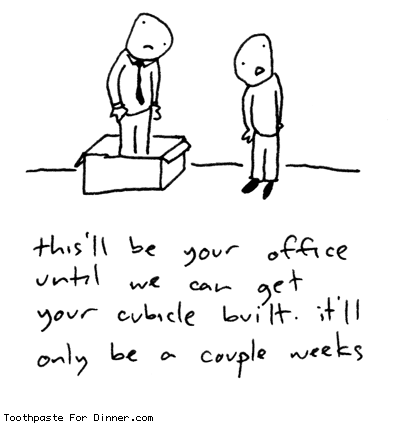 this'll be your office
until we can get
your cubicle built. it'll
only be a couple weeks
Toothpaste For Dinner.com